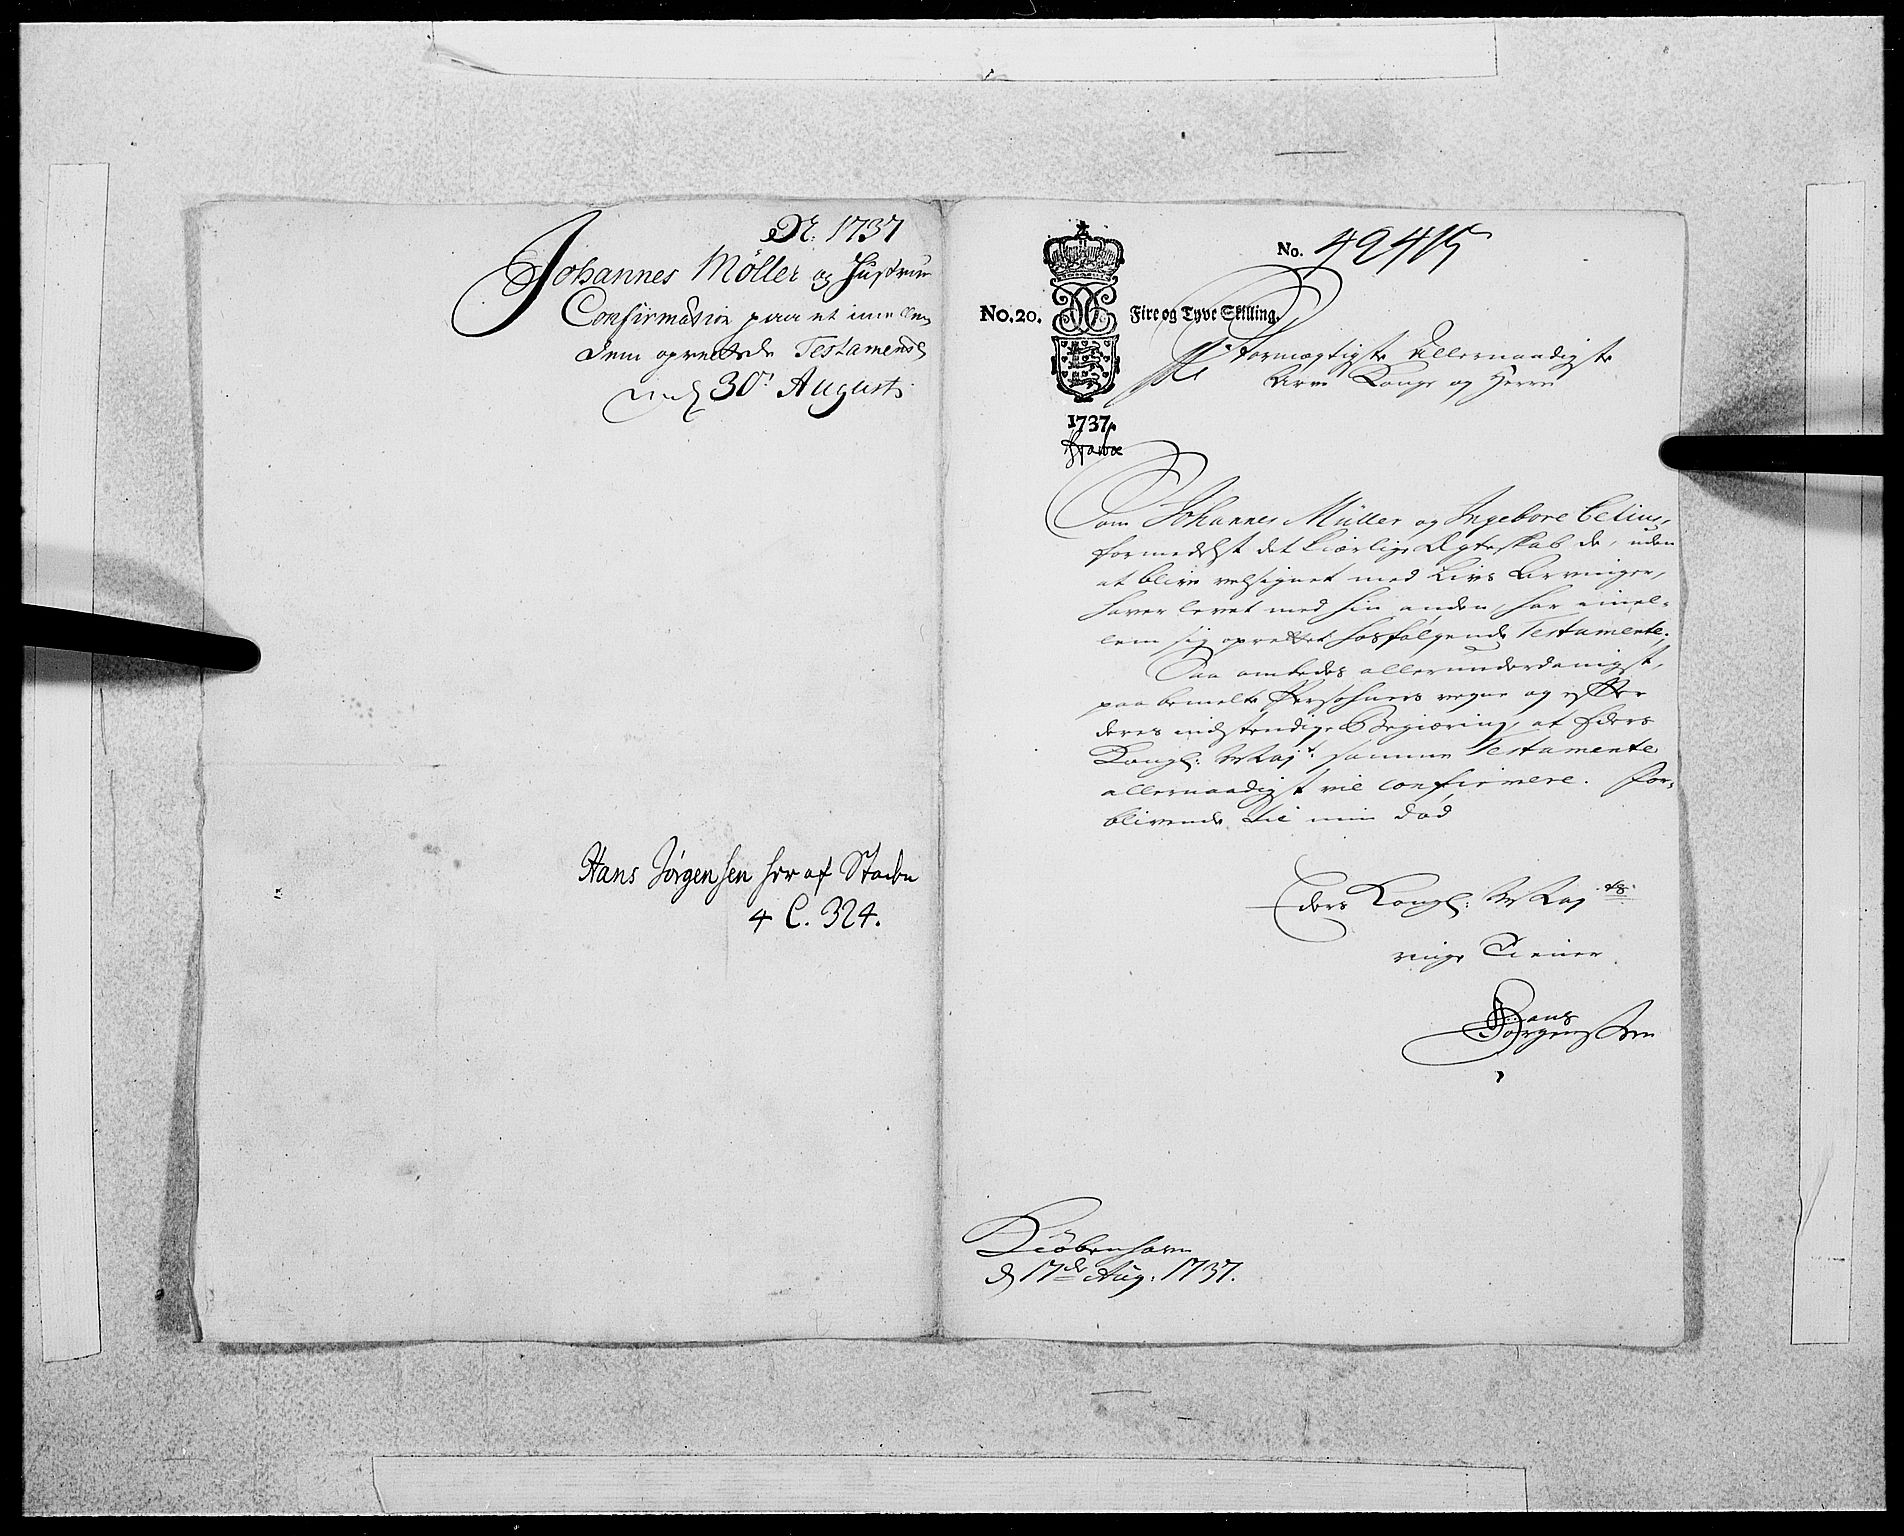 Dr. 1737
Johannes Möller og Hustrue
Confirmation paa et imellem
dem oprettede Testament
30t Augusti
Hans Jörgensen her af Staden
4 C. 324.
No. 49415
No. 20.
Fire og Tyve Skilling.
Stormægtigste Allernaadigste
Arve Konge og Herre
1737.
Som Johannes Müller og Ingebore Celius,
formedelst det kiærlige Ægteskab de, uden
at blive velsignet med Livs Arvinger,
haver levet med hin anden, har imel-
lem sig oprettet hosfølgende Testamente.
Saa ombedes allerunderdanigst,
paa bemelte Persohners vegne og efter
deres indstendige Begiæring, at Eders
Kongl: Mayt. samme Testamente
allernaadigst vil confirmere. For-
blivende til min død
Eders Kongl: Mayts.
ringe Tiener
Hans
Jørgenssen
Kiöbenhavn
d 17de Aug: 1737.